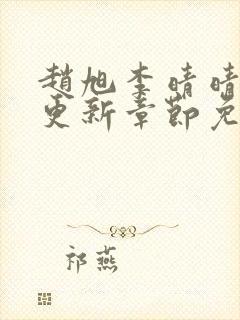 趙旭李晴晴
更新章節免
祁燕